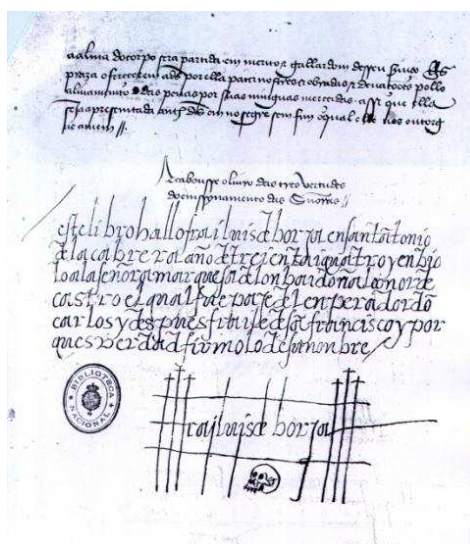 aalma do corpo seia partida em menor gallardom desseu seruiço
praza offerecem a ds por ella pater nostros obradas e deuaçoões pollo
aliuamento das penas por suas minguas merecidas. assi que ella
seja apresentada ante ds em no segre sem fim o qual elle nos outorg
ue amem
Acabousse oliuro das tres vertudes
do emssynamento das Senoras
este libro hallo frai luis d borja en santantonio
de la cabrera el año d treienta i quatro y en bio
lo a la señora marquesa d lonbai doña leonor de
castro el qual fue paje del enperador dō
carlos y despues fraile d sā francisco y por
ques verdad firmolo de su nonbre
frai luis de borja
BIBLIOTECA
NACIONAL